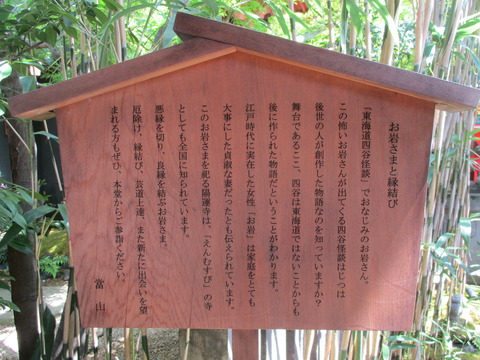 お岩さまと縁結び
「東海道四谷怪談」でおなじみのお岩さん。
この怖いお岩さんが出てくる四谷怪談はじつは
後世の人が創作した物語なのを知っていますか？
舞台であるここ、四谷は東海道ではないことからも
後に作られた物語だということがわかります。
江戸時代に実在した女性「お岩」は家庭をとても
大事にした貞淑な妻だったとも伝えられています。
このお岩さまを祀る陽運寺は、「えんむすび」の寺
としても全国に知られています。
悪縁を切り、良縁を結ぶお岩さま。
厄除け、縁結び、芸道上達、また新たに出会いを望
まれる方もぜひ、本堂からご参詣ください。
當山